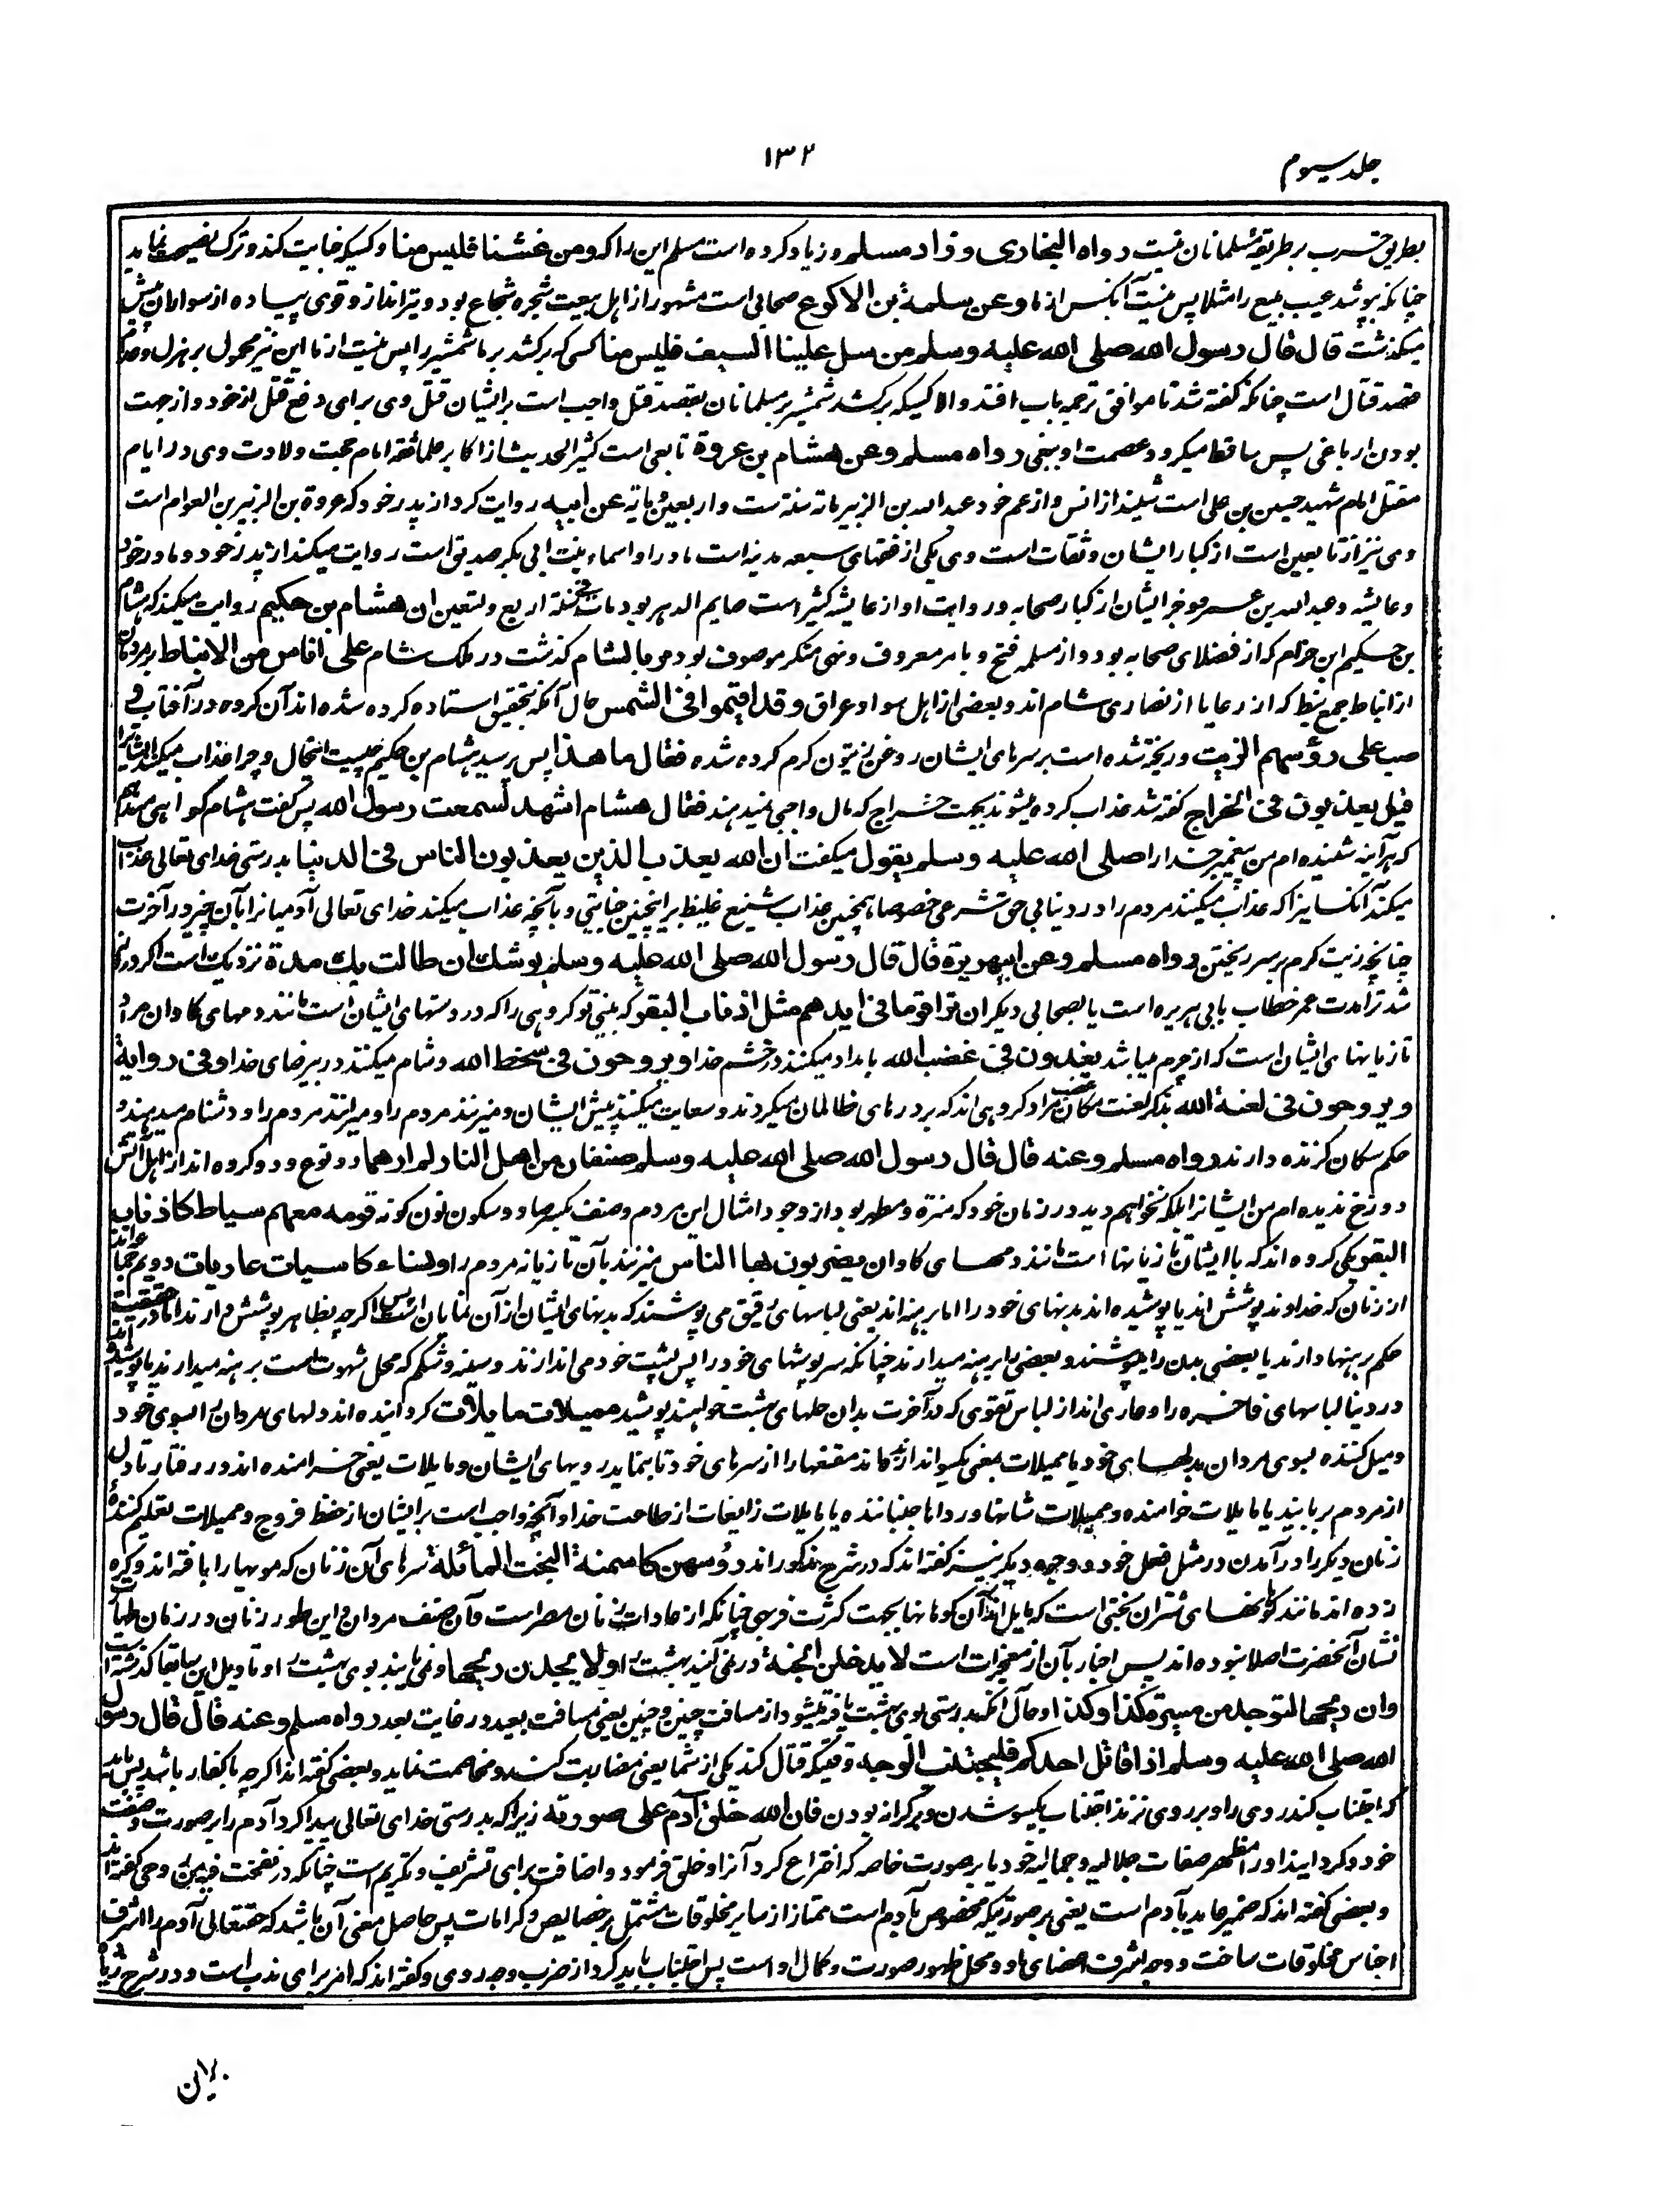 جلد سیوم
۱۳۲
بطریق حرب بر طریقهٔ مسلمانان نیست رواه البخاری وزاد مسلم و زیاد کرده است مسلم این را که ومن غشنا فلیس منا و کسیکه خیانت کند و ترک نصیحت نماید
چنانکه بپوشد عیب مبیع را مثلا پس نیست آنکس از ما وعن سلمة بن الاکوع صحابی است مشهور از اهل بیعت شجره شجاع بود و تیرانداز و قوی پیاده از سواران پیش
میگذشت قال قال رسول الله صلی الله علیه وسلم من سل علینا السیف فلیس منا کسی که برکشد بر ما شمشیر را پس نیست از ما این نیز محمول بر هزل و عدم
قصد قتال است چنانکه گفته شد تا موافق ترجمه باب افتد و الا کسیکه برکشد شمشیر بر مسلمانان بقصد قتل واجب است بر ایشان قتل وی برای دفع قتل از خود و از جهت
بودن او باغی پس ساقط میگردد عصمت او ببغی رواه مسلم وعن هشام بن عروة تابعی است کثیر الحدیث از اکابر علما ثقه امام حجت ولادت وی در ایام
مقتل امام شهید حسین بن علی است شنید از انس و از عم خود عبد الله بن الزبیر مات سنه ست و اربعین و مایة عن ابیه روایت کرد از پدر خود که عروة بن الزبیر بن العوام است
وی نیز از تابعین است از کبار ایشان و ثقات است وی یکی از فقهای سبعه مدینه است مادر او اسماء بنت ابی بکر صدیق است روایت میکند از پدر خود و مادر خود
و عایشه و عبد الله بن عمر و غیر ایشان از کبار صحابه و روایت او از عایشه کثیر است صایم الدهر بود مات سنة اربع و تسعین ان هشام بن حکیم روایت میکند که هشام
بن حکیم ابن حزام که از فضلای صحابه بود و از مسلمه فتح و بامر معروف و نهی منکر موصوف بود مر بالشام گذشت در ملک شام علی اناس من الانباط بر مردمان
از انباط جمع نبط که از رعایا از نصاری شام اند و بعضی از اهل سواد عراق وقد اقیموا فی الشمس حال آنکه بتحقیق استاده کرده شده اند آن گروه در آفتاب و
صب علی رؤسهم الزیت و ریخته شده است بر سرهای ایشان روغن زیتون گرم کرده شده فقال ما هذا پس پرسید هشام بن حکیم چیست این حال و چرا عذاب میکنند ایشانرا
قیل یعذبون فی الخراج گفته شد عذاب کرده میشوند بجهت خراج که مال واجبی نمیدهند فقال هشام اشهد لسمعت رسول الله پس گفت هشام گواهی میدهم
که هر آینه شنیده ام من پیغمبر خدا را صلی الله علیه وسلم یقول میگفت ان الله یعذب الذین یعذبون الناس فی الدنیا بدرستی خدای تعالی عذاب
میکند آنکسانیرا که عذاب میکنند مردم را در دنیا بی حق شرعی خصوصا همچنین عذاب شنیع غلیظ بر اینچنین جنایتی و بآنچه عذاب میکنند خدای تعالی آدمیانرا بآن چیز در آخرت
چنانچه زیت گرم بر سر ریختن رواه مسلم وعن ابی هریرة قال قال رسول الله صلی الله علیه وسلم یوشک ان طالت بک مدة نزدیک است اگر دراز
شد ترا مدت عمر خطاب بابی هریره است یا بصحابی دیگر ان تری قوما فی ایدیهم مثل اذناب البقر که ببینی تو گروهی را که در دستهای ایشان است مانند دمهای گاوان مراد
تازیانهای ایشان است که از چرم میباشد یغدون فی غضب الله بامداد میکنند در خشم خدا ویروحون فی سخط الله و شام میکنند در بیرضای خدا وفی روایة
ویروحون فی لعنة الله بذکر لعنت مکان غضب مراد گروهی اند که بر درهای ظالمان میگردند و سعایت میکنند پیش ایشان و میزنند مردم را و میرانند مردم را و دشنام میدهند و
حکم سگان گزنده دارند رواه مسلم وعنه قال قال رسول الله صلی الله علیه وسلم صنفان من اهل النار لم ارهما دو نوع و دو گروه اند از اهل آتش
دوزخ ندیده ام من ایشانرا بلکه نخواهم دید در زمان خود که منزه و مطهر بود از وجود امثال این مردم و صنف بکسر صاد و سکون نون گونه قوم معهم سیاط کاذناب
البقر یکی گروه اند که با ایشان تازیانها است مانند دمهای گاوان یضربون بها الناس میزنند بآن تازیانه مردم را ونساء کاسیات عاریات دویم جماعه اند
از زنان که خداوند پوشش اند یا پوشیده اند بدنهای خود را اما برهنه اند یعنی لباسهای رقیق می پوشند که بدنهای ایشان از آن نمایان است پس اگرچه بظاهر پوشش دارند اما در حقیقت
حکم برهنها دارند یا بعضی بدن را میپوشند و بعضی را برهنه میدارند چنانکه سرپوشهای خود را پس پشت خود می اندازند و سینه و شکم که محل شهوت است برهنه میدارند یا پوشیده اند
در دنیا لباسهای فاخره را و عاری اند از لباس تقوی که در آخرت بدان حلهای بهشت خواهند پوشید ممیلات مایلات گرداینده اند دلهای مردان را بسوی خود
و میل کننده بسوی مردان بدلهای خود یا ممیلات بمعنی یکسو اندازنده اند مقنعها را از سرهای خود تا بنماید رویهای ایشان و مایلات یعنی خرامنده اند در رفتار تا دل
از مردم بربایند یا مایلات خرامنده و ممیلات شانها و رداها جنباننده یا مایلات زایغات از طاعت خدا و آنچه واجب است بر ایشان از حفظ فروج و ممیلات تعلیم کننده
زنان دیگر را درآمدن در مثل فعل خود و دو وجه دیگر نیز گفته اند که در شرح مذکور اند رؤسهن کاسنمة البخت المائلة سرهای آن زنان که مویها را بافته اند و گره
زده اند مانند کوهانهای شتران بختی است که مایل اند آن کوهانها بجهت کثرت فربهی چنانکه از عادات زنان مصر است و آن صنف مردان و این طور زنان در زمان طهارت
نشان آنحضرت اصلا نبوده اند پس اخبار بآن از معجزات است لا یدخلن الجنة در نمی آیند بهشت را ولا یجدن ریحها و نمی یابند بوی بهشت را و تاویل این سابقا گذشته است
وان ریحها لتوجد من مسیرة کذا وکذا و حال آنکه بدرستی بوی بهشت یافته میشود از مسافت چنین و چنین یعنی مسافت بعید در غایت بعد رواه مسلم وعنه قال قال رسول
الله صلی الله علیه وسلم اذا قاتل احدکم فلیجتنب الوجه وقتیکه قتال کند یکی از شما یعنی مضاربت کند و مخاصمت نماید و بعضی گفته اند اگرچه با کفار باشد پس باید
که اجتناب کند روی را و بر روی نزند اجتناب یکسو شدن و بر کرانه بودن فان الله خلق آدم علی صورته زیرا که بدرستی خدای تعالی پیدا کرد آدم را بر صورت و صفت
خود و گردایند او را مظهر صفات جلالیه و جمالیه خود یا بر صورت خاصه که اختراع کرد آنرا و خلق فرمود و اضافت برای تشریف و تکریم است چنانکه در نفخت فیه من روحی گفته اند
و بعضی گفته اند که ضمیر عاید بآدم است یعنی بر صورتیکه مخصوص بآدم است ممتاز از سایر مخلوقات مشتمل بر خصایص و کرامات پس حاصل معنی آن باشد که حقتعالی آدم را اشرف
اجناس مخلوقات ساخت و وجه اشرف اعضای او و محل ظهور صورت و کمال او است پس اجتناب باید کرد از ضرب وجه روی و گفته اند که امر برای ندب است و در شرح